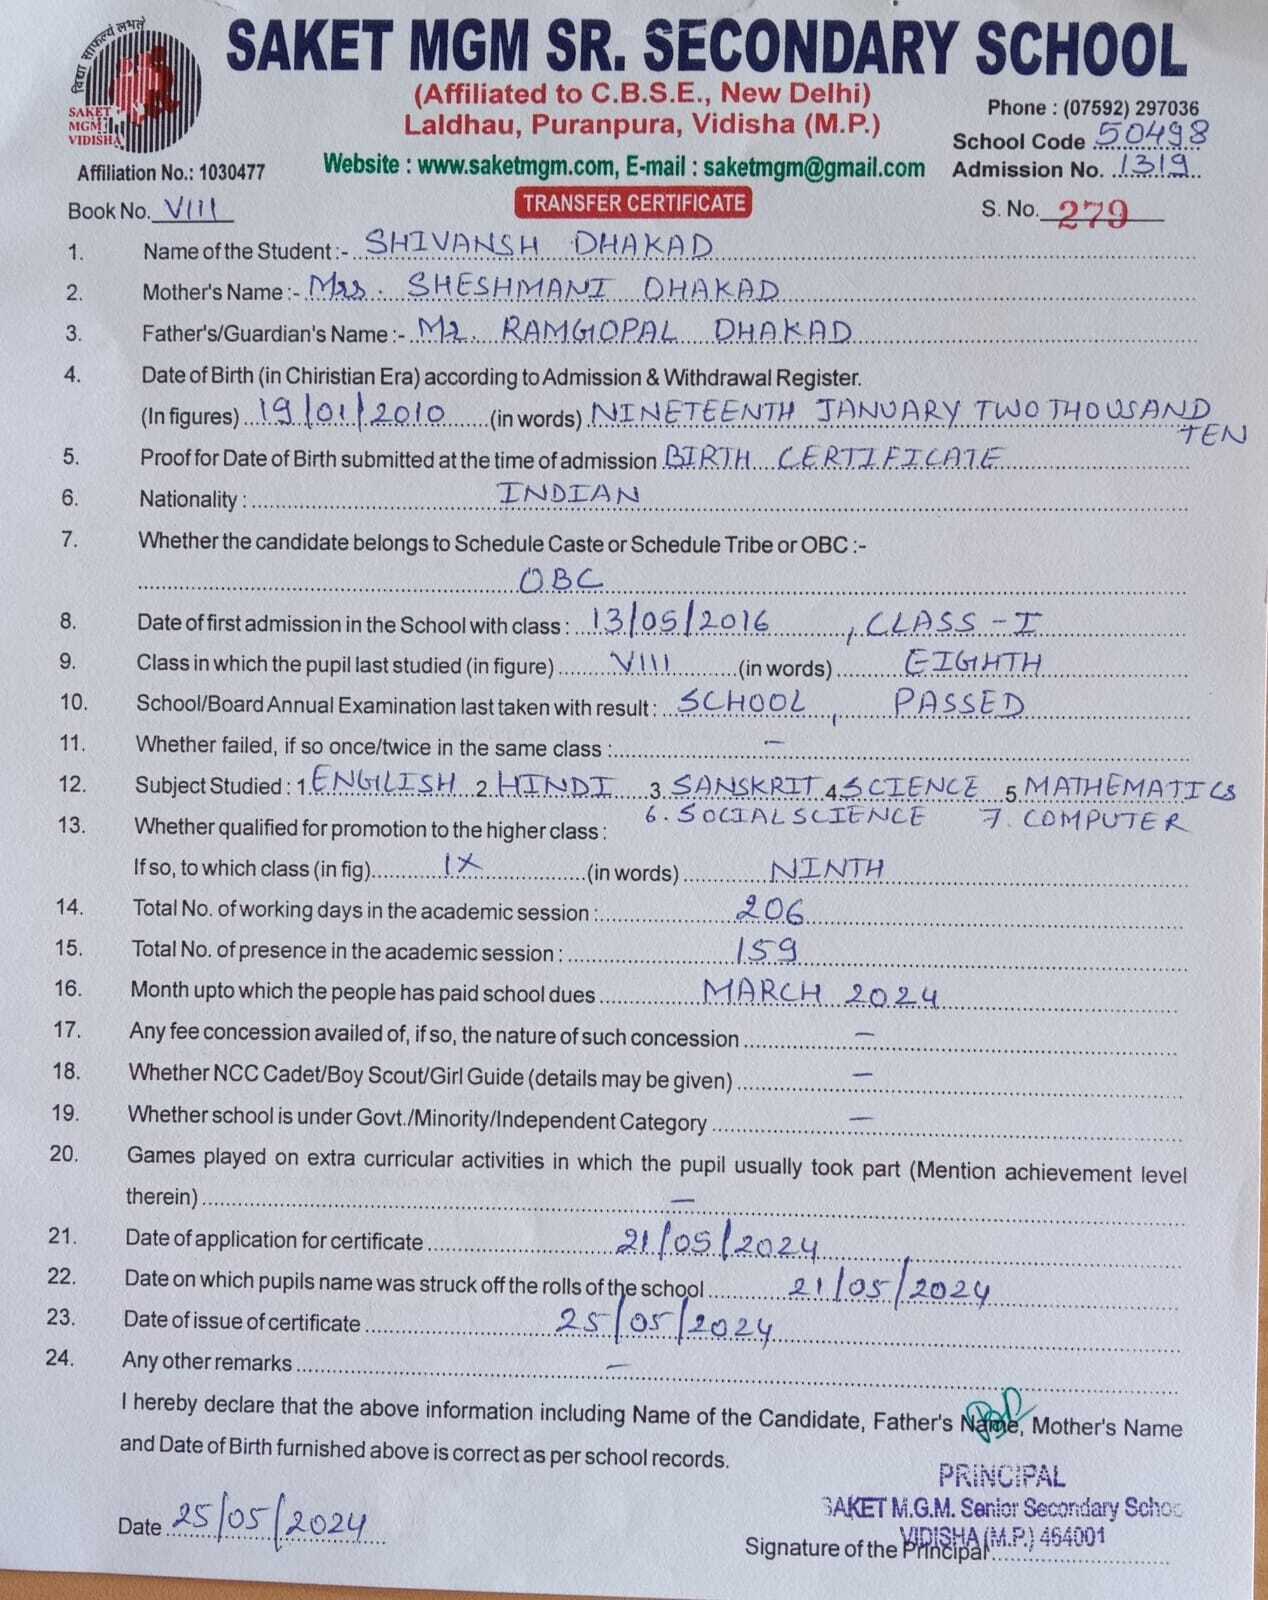 विद्या साफल्यं लभते
SAKET
MGM
VIDISHA
SAKET MGM SR. SECONDARY SCHOOL
(Affiliated to C.B.S.E., New Delhi)
Laldhau, Puranpura, Vidisha (M.P.)
Phone : (07592) 297036
School Code 50498
Affiliation No.: 1030477
Website : www.saketmgm.com, E-mail : saketmgm@gmail.com
Admission No. 1319
Book No. VIII
TRANSFER CERTIFICATE
S. No. 279
1. Name of the Student :- SHIVANSH DHAKAD
2. Mother's Name :- Mrs. SHESHMANI DHAKAD
3. Father's/Guardian's Name :- Mr. RAMGOPAL DHAKAD
4. Date of Birth (in Chiristian Era) according to Admission & Withdrawal Register.
(In figures) 19/01/2010 (in words) NINETEENTH JANUARY TWO THOUSAND
TEN
5. Proof for Date of Birth submitted at the time of admission BIRTH CERTIFICATE
6. Nationality : INDIAN
7. Whether the candidate belongs to Schedule Caste or Schedule Tribe or OBC :-
OBC
8. Date of first admission in the School with class : 13/05/2016 , CLASS - I
9. Class in which the pupil last studied (in figure) VIII (in words) EIGHTH
10. School/Board Annual Examination last taken with result : SCHOOL , PASSED
11. Whether failed, if so once/twice in the same class : -
12. Subject Studied : 1 ENGLISH 2 HINDI 3 SANSKRIT 4 SCIENCE 5 MATHEMATICS
6. SOCIAL SCIENCE 7. COMPUTER
13. Whether qualified for promotion to the higher class :
If so, to which class (in fig) IX (in words) NINTH
14. Total No. of working days in the academic session : 206
15. Total No. of presence in the academic session : 159
16. Month upto which the people has paid school dues MARCH 2024
17. Any fee concession availed of, if so, the nature of such concession -
18. Whether NCC Cadet/Boy Scout/Girl Guide (details may be given) -
19. Whether school is under Govt./Minority/Independent Category -
20. Games played on extra curricular activities in which the pupil usually took part (Mention achievement level
therein) -
21. Date of application for certificate 21/05/2024
22. Date on which pupils name was struck off the rolls of the school 21/05/2024
23. Date of issue of certificate 25/05/2024
24. Any other remarks -
I hereby declare that the above information including Name of the Candidate, Father's Name, Mother's Name
and Date of Birth furnished above is correct as per school records.
PRINCIPAL
SAKET M.G.M. Senior Secondary Schoo
VIDISHA (M.P.) 464001
Date 25/05/2024
Signature of the Principal